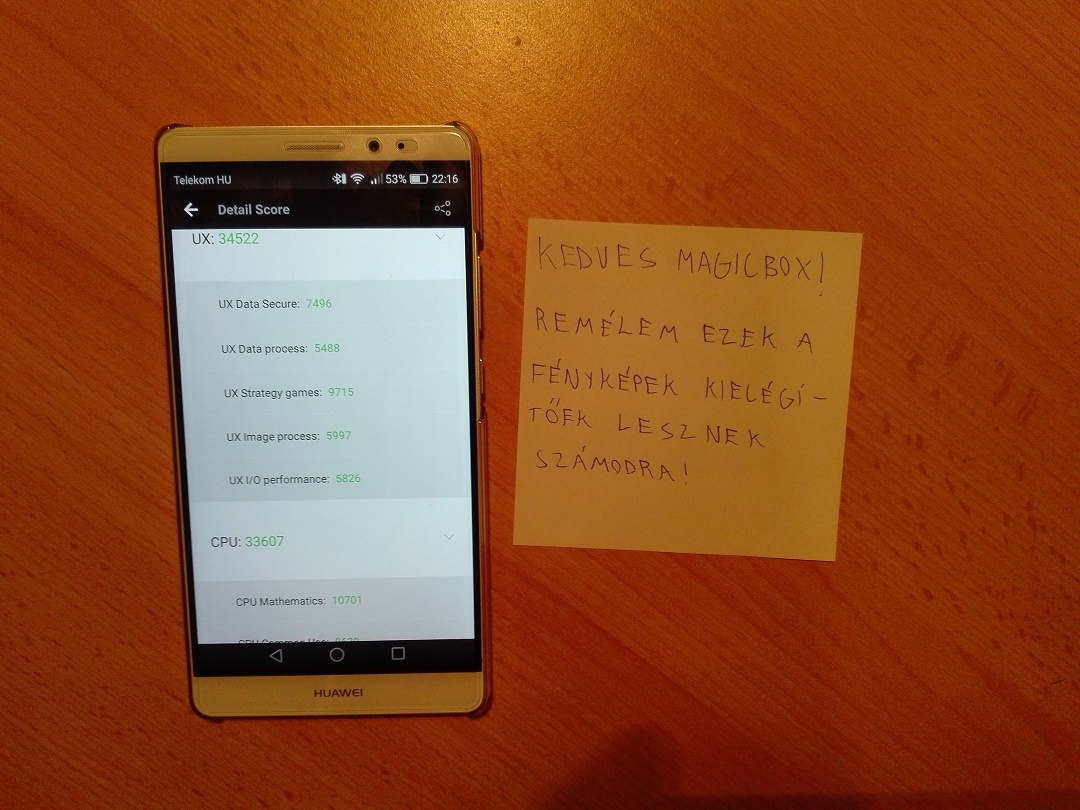 Telekom HU 53% 22:16
Detail Score
UX: 34522
UX Data Secure: 7496
UX Data process: 5488
UX Strategy games: 9715
UX Image process: 5997
UX I/O performance: 5826
CPU: 33607
CPU Mathematics: 10701
CPU Common Use:
HUAWEI
KEDVES MAGICBOX!
REMÉLEM EZEK A
FÉNYKÉPEK KIELÉGÍ-
TŐEK LESZNEK
SZÁMODRA!